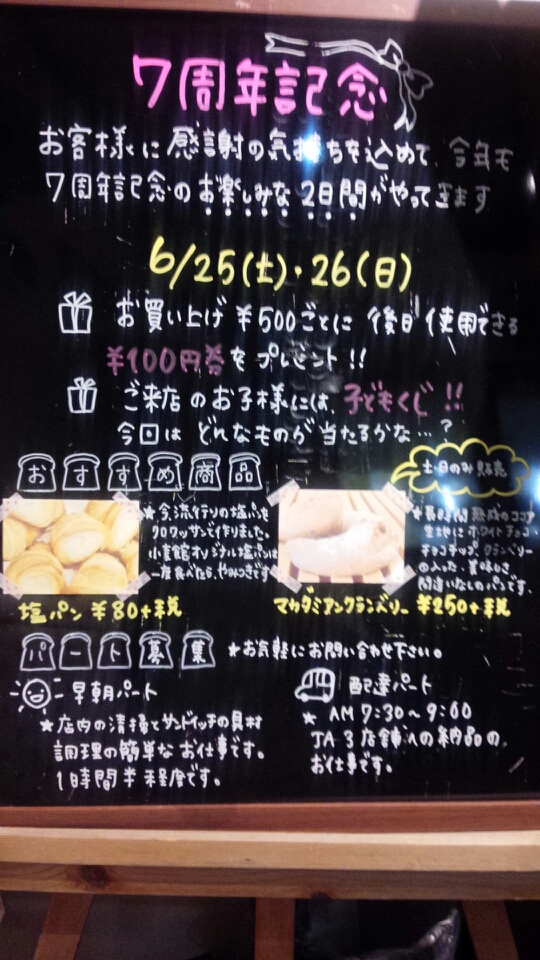 7周年記念
お客様に感謝の気持ちを込めて、今年も
7周年記念のお楽しみな2日間がやってきます
6/25(土)・26(日)
お買い上げ¥500ごとに後日使用できる
¥100円券をプレゼント!!
ご来店のお子様には、子どもくじ!!
今回はどんなものが当たるかな…?
おすすめ商品
土・日のみ販売
★今流行りの塩パンを
クロワッサンで作りました。
小麦館オリジナル塩パンは
一度食べたら、やみつきです
塩パン ¥80+税
★長時間熟成のココア
生地にホワイトチョコ・
チョコチップ、クランベリー
の入った、美味しさ
間違いなしのパンです。
マカダミアンクランベリー ¥250+税
パート募集 ★お気軽にお問い合わせ下さい。
早朝パート
★店内の清掃とサンドイッチの具材
調理の簡単なお仕事です。
1時間半程度です。
配達パート
★ AM 7:30~9:00
JA 3店舗への納品の
お仕事です。